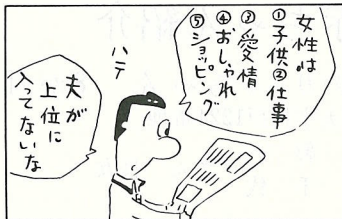 女性は
①子供②仕事
③愛情
④おしゃれ
⑤ショッピング
ハテ
夫が
上位に
入ってないな